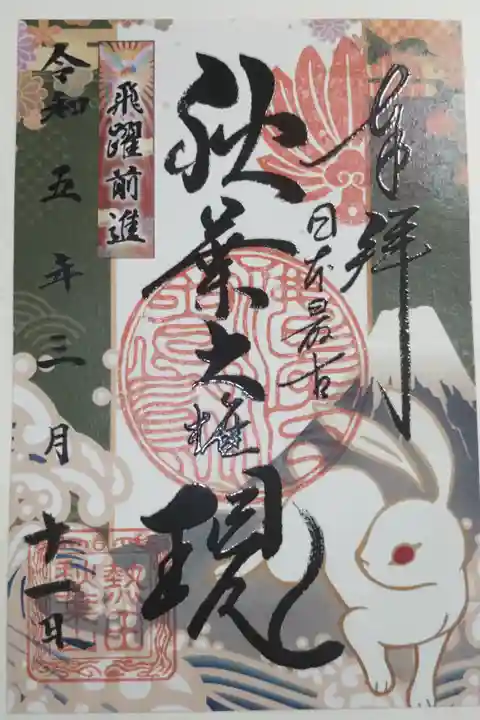 奉拝
日本最古
秋葉大権現
飛躍前進
令和五年三月十一日